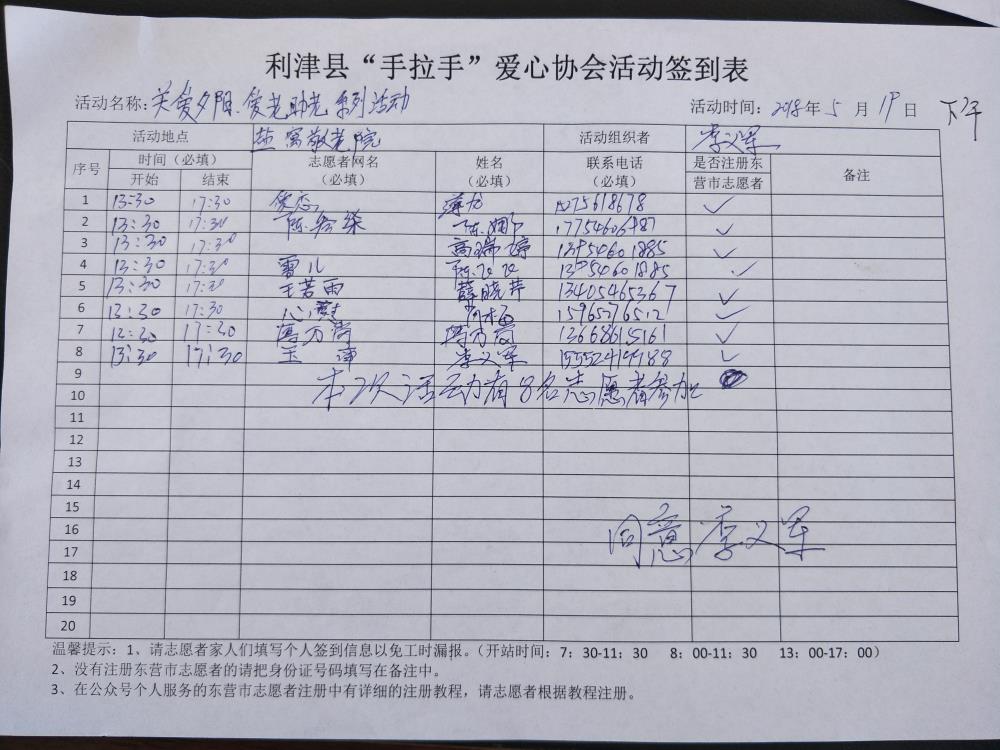 利津县“手拉手”爱心协会活动签到表
活动名称：关爱夕阳.爱老助老系列活动 活动时间：2018年5月19日 下午
活动地点 盐窝敬老院 活动组织者 李义军
序号 时间（必填） 志愿者网名（必填） 姓名（必填） 联系电话（必填） 是否注册东营市志愿者 备注
开始 结束
1 13:30 17:30 15275618678 ✓
2 13:30 17:30 陈 17754606987 ✓
3 13:30 17:30 高瑞婷 13954601885 ✓
4 13:30 17:30 雪儿 陈 13954601885 ✓
5 13:30 17:30 王若雨 薛晓芹 13405465367 ✓
6 13:30 17:30 15965276512 ✓
7 12:30 17:30 13668615161 ✓
8 13:30 17:30 李义军 ✓
9
本次活动有8名志愿者参加
10
11
12
13
14
15
16
同意 李义军
17
18
19
20
温馨提示：1、请志愿者家人们填写个人签到信息以免工时漏报。（开站时间：7：30-11：30 8：00-11：30 13：00-17：00）
2、没有注册东营市志愿者的请把身份证号码填写在备注中。
3、在公众号个人服务的东营市志愿者注册中有详细的注册教程，请志愿者根据教程注册。